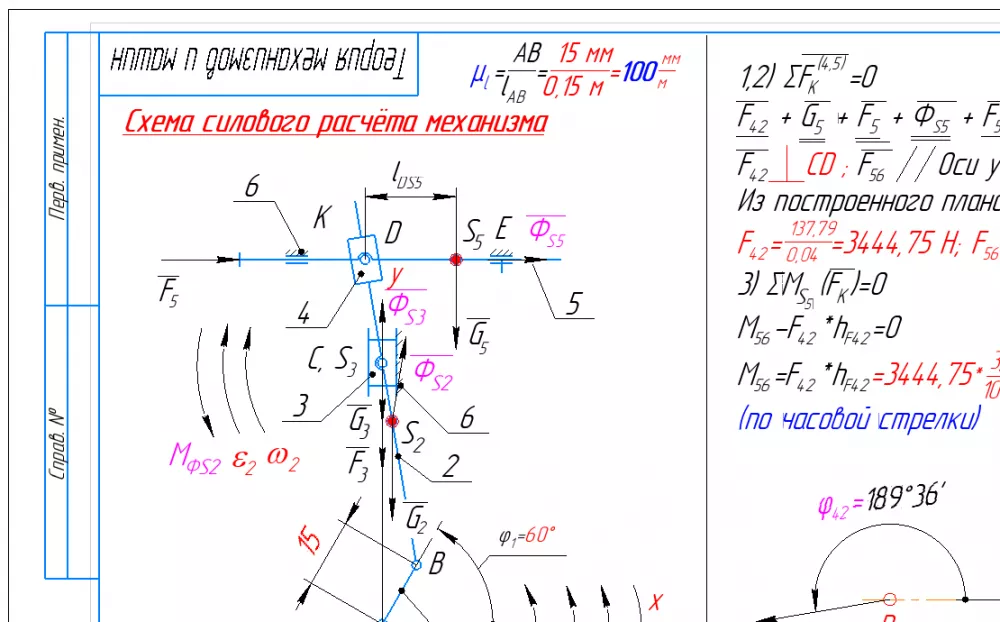 Теория механизмов и машин
μl = AB / lAB = 15 мм / 0,15 м = 100 мм/м
Схема силового расчёта механизма
Перв. примен.
Справ. №
lDS5
6
K
D
S5
E
ΦS5
F5
y
4
ΦS3
G5
5
C, S3
ΦS2
3
G3
6
S2
MΦS2 ε2 ω2
F3
2
G2
15
φ1=60°
B
x
1,2) ΣFK(4,5)=0
F42 + G5 + F5 + ΦS5 +
F42 ⊥ CD ; F56 // Оси y
Из построенного
F42=137,79/0,04=3444,75 Н; F56
3) ΣMS5 (FK)=0
M56 –F42 *hF42=0
M56 =F42 *hF42=3444,75*
(по часовой стрелки)
φ42=189°36'